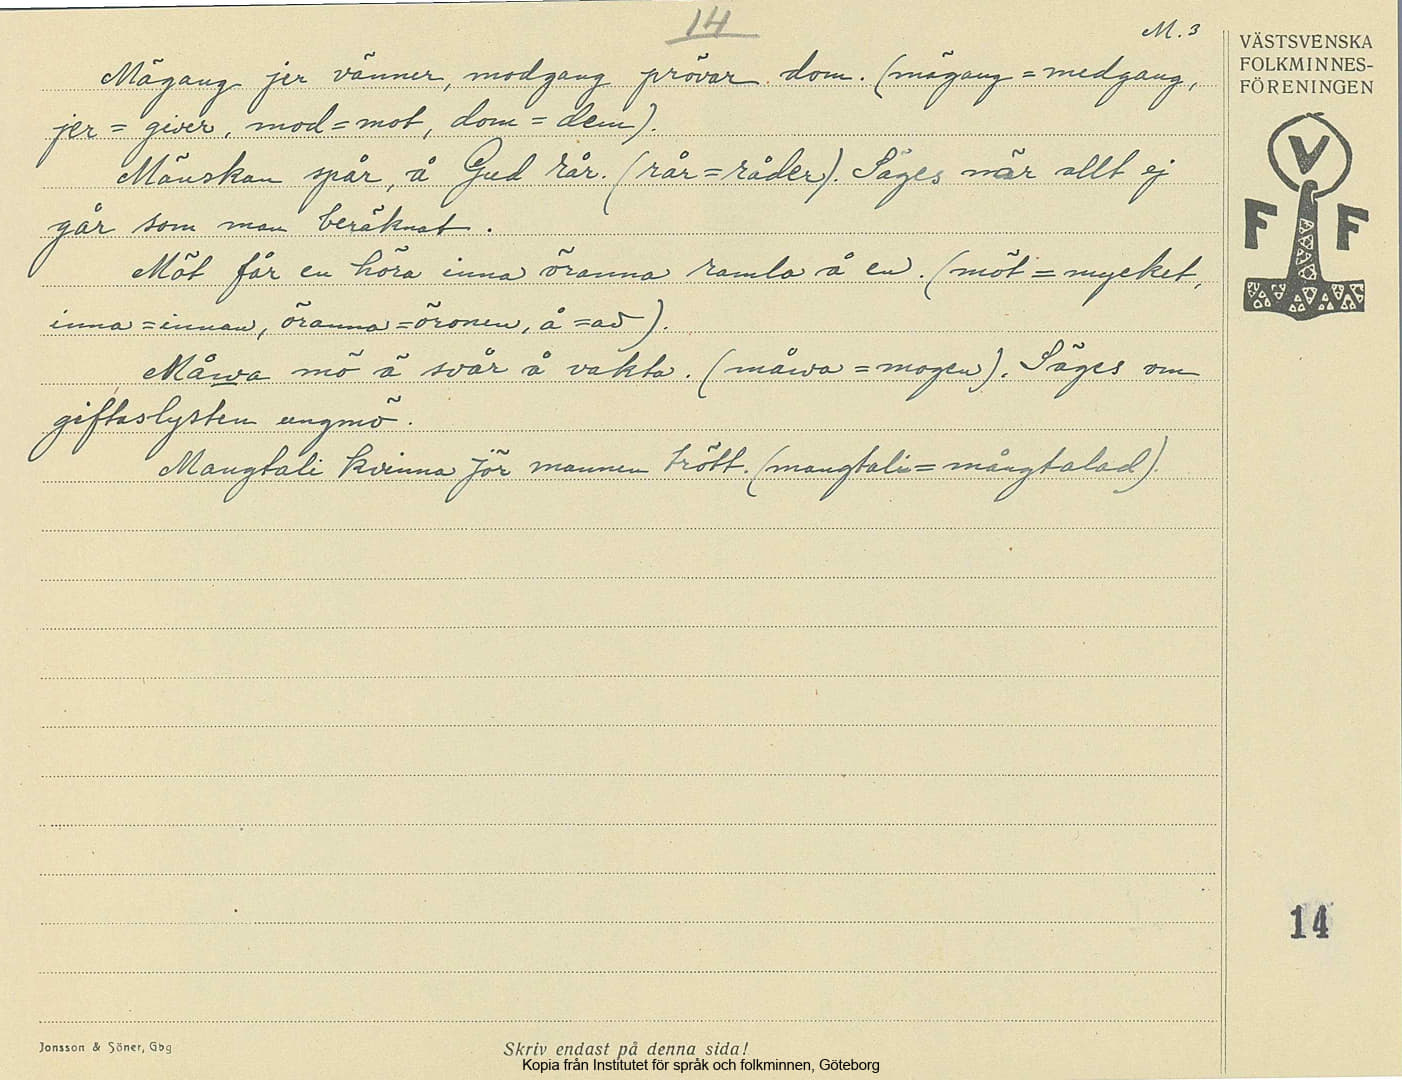 14
M. 3
Mägang jer vänner, modgang prövar dom. (mägang = medgang,
jer = giver, mod = mot, dom = dem).
Mänskan spår, å Gud rår. (rår = råder). Säges när allt ej
går som man beräknat.
Möt får en höra inna öranna ramla å en. (möt = mycket,
inna = innan, öranna = öronen, å = av).
Måwa mö ä svår å vakta. (måwa = mogen). Säges om
giftaslysten ungmö.
Mangtali kvinna jör mannen trött. (mangtali = mångtalad).
VÄSTSVENSKA
FOLKMINNES-
FÖRENINGEN
V
F F
14
Jonsson & Söner, Gbg
Skriv endast på denna sida!
Kopia från Institutet för språk och folkminnen, Göteborg